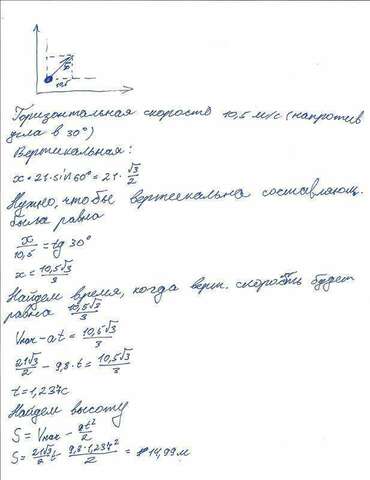 10,5
Горизонтальная скорость 10,5 м/с (напротив
угла в 30°)
Вертикальная:
x = 21·sin 60° = 21·√3/2
Нужно, чтобы вертикальна составляющ.
была равна
x/10,5 = tg 30°
x = 10,5√3/3
Найдем время, когда верт. скорость будет
равна 10,5√3/3
Vнач - at = 10,5√3/3
21√3/2 - 9,8·t = 10,5√3/3
t = 1,237с
Найдем высоту
S = Vнач - at²/2
S = 21√3/2 t 9,8·1,237²/2 = 14,99 м